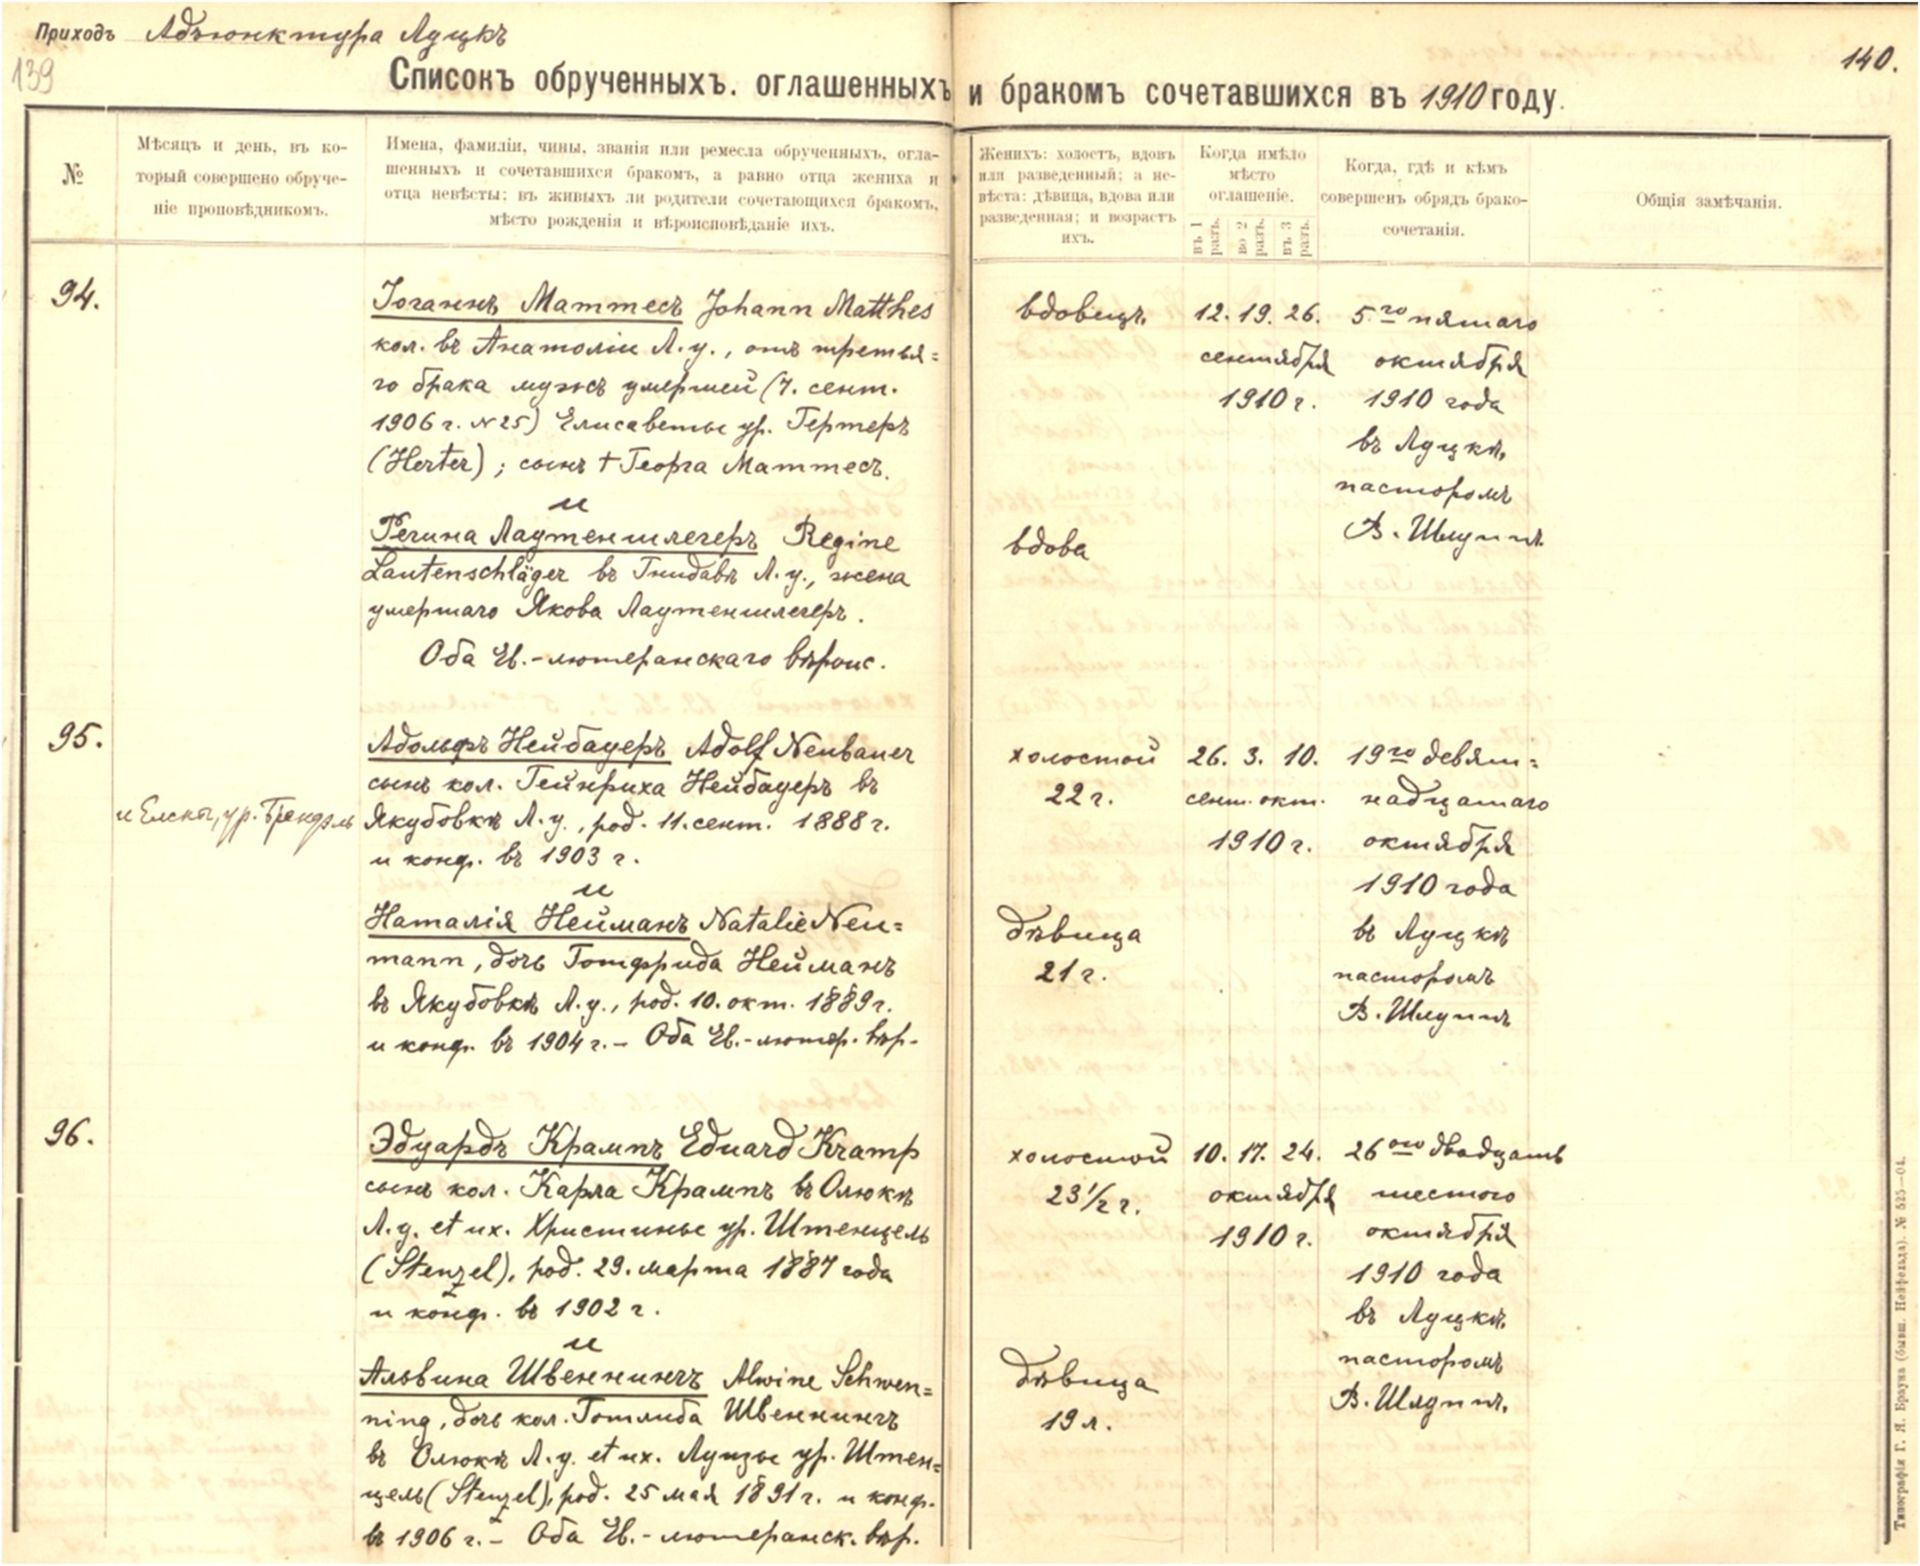 Приходъ Адъюнктура Луцкъ
139
140.
Списокъ обрученныхъ. оглашенныхъ и бракомъ сочетавшихся въ 1910 году.
№
Мѣсяцъ и день, въ ко-
торый совершено обруче-
ніе проповѣдникомъ.
Имена, фамиліи, чины, званія или ремесла обрученныхъ, огла-
шенныхъ и сочетавшихся бракомъ, а равно отца жениха и
отца невѣсты; въ живыхъ ли родители сочетающихся бракомъ,
мѣсто рожденія и вѣроисповѣданіе ихъ.
Женихъ: холостъ, вдовъ
или разведенный; а не-
вѣста: дѣвица, вдова или
разведенная; и возрастъ
ихъ.
Когда имѣло
мѣсто
оглашеніе.
въ 1 разъ.
во 2 разъ.
въ 3 разъ.
Когда, гдѣ и кѣмъ
совершенъ обрядъ брако-
сочетанія.
Общія замѣчанія.
94.
Іоганнъ Маттесъ Johann Matthes
кол. въ Анатоліи Л. у., отъ третья=
го брака мужъ умершей (7. сент.
1906 г. N 25) Елисаветы ур. Гертеръ
(Herter); сынъ † Георга Маттесъ.
и
Регина Лаутеншлегеръ Regine
Lautenschläger въ Гнидавѣ Л. у., жена
умершаго Якова Лаутеншлегеръ.
Оба Ев.-лютеранскаго вѣроис.
вдовецъ
вдова
12. 19. 26.
сентября
1910 г.
5.го пятаго
октября
1910 года
въ Луцкѣ,
пасторомъ
В. Шлуппъ.
95.
и Елены, ур. Брендэль
Адольфъ Нейбауеръ Adolf Neubauer
сынъ кол. Гейнриха Нейбауеръ въ
Якубовкѣ Л. у., род. 11. сент. 1888 г.
и конф. въ 1903 г.
и
Наталія Нейманъ Natalie Neu=
mann, дочь Готфрида Нейманъ
въ Якубовкѣ Л. у., род. 10. окт. 1889 г.
и конф. въ 1904 г. – Оба Ев.-лютер. вѣр.
холостой
22 г.
дѣвица
21 г.
26. 3. 10.
сент. окт.
1910 г.
19го девят=
надцатаго
октября
1910 года
въ Луцкѣ
пасторомъ
В. Шлуппъ
96.
Эдуардъ Крампъ Eduard Kramp
сынъ кол. Карла Крампъ въ Олюкѣ
Л. у. et их. Христины ур. Штенцель
(Stenzel), род. 29. марта 1887 года
и конф. въ 1902 г.
и
Альвина Швеннингъ Alwine Schwen=
ning, дочь кол. Готлиба Швеннингъ
въ Олюкѣ Л. у. et их. Луизы ур. Штен=
цель (Stenzel), род. 25 мая 1891 г. и конф.
въ 1906 г. – Оба Ев.-лютеранск. вѣр.
холостой
23 1/2 г.
дѣвица
19 л.
10. 17. 24.
октября
1910 г.
26ого двадцать
шестого
октября
1910 года
въ Луцкѣ,
пасторомъ
В. Шлуппъ.
Типографія Г. Я. Брауна (бывш. Нейфельда). № 525—04.